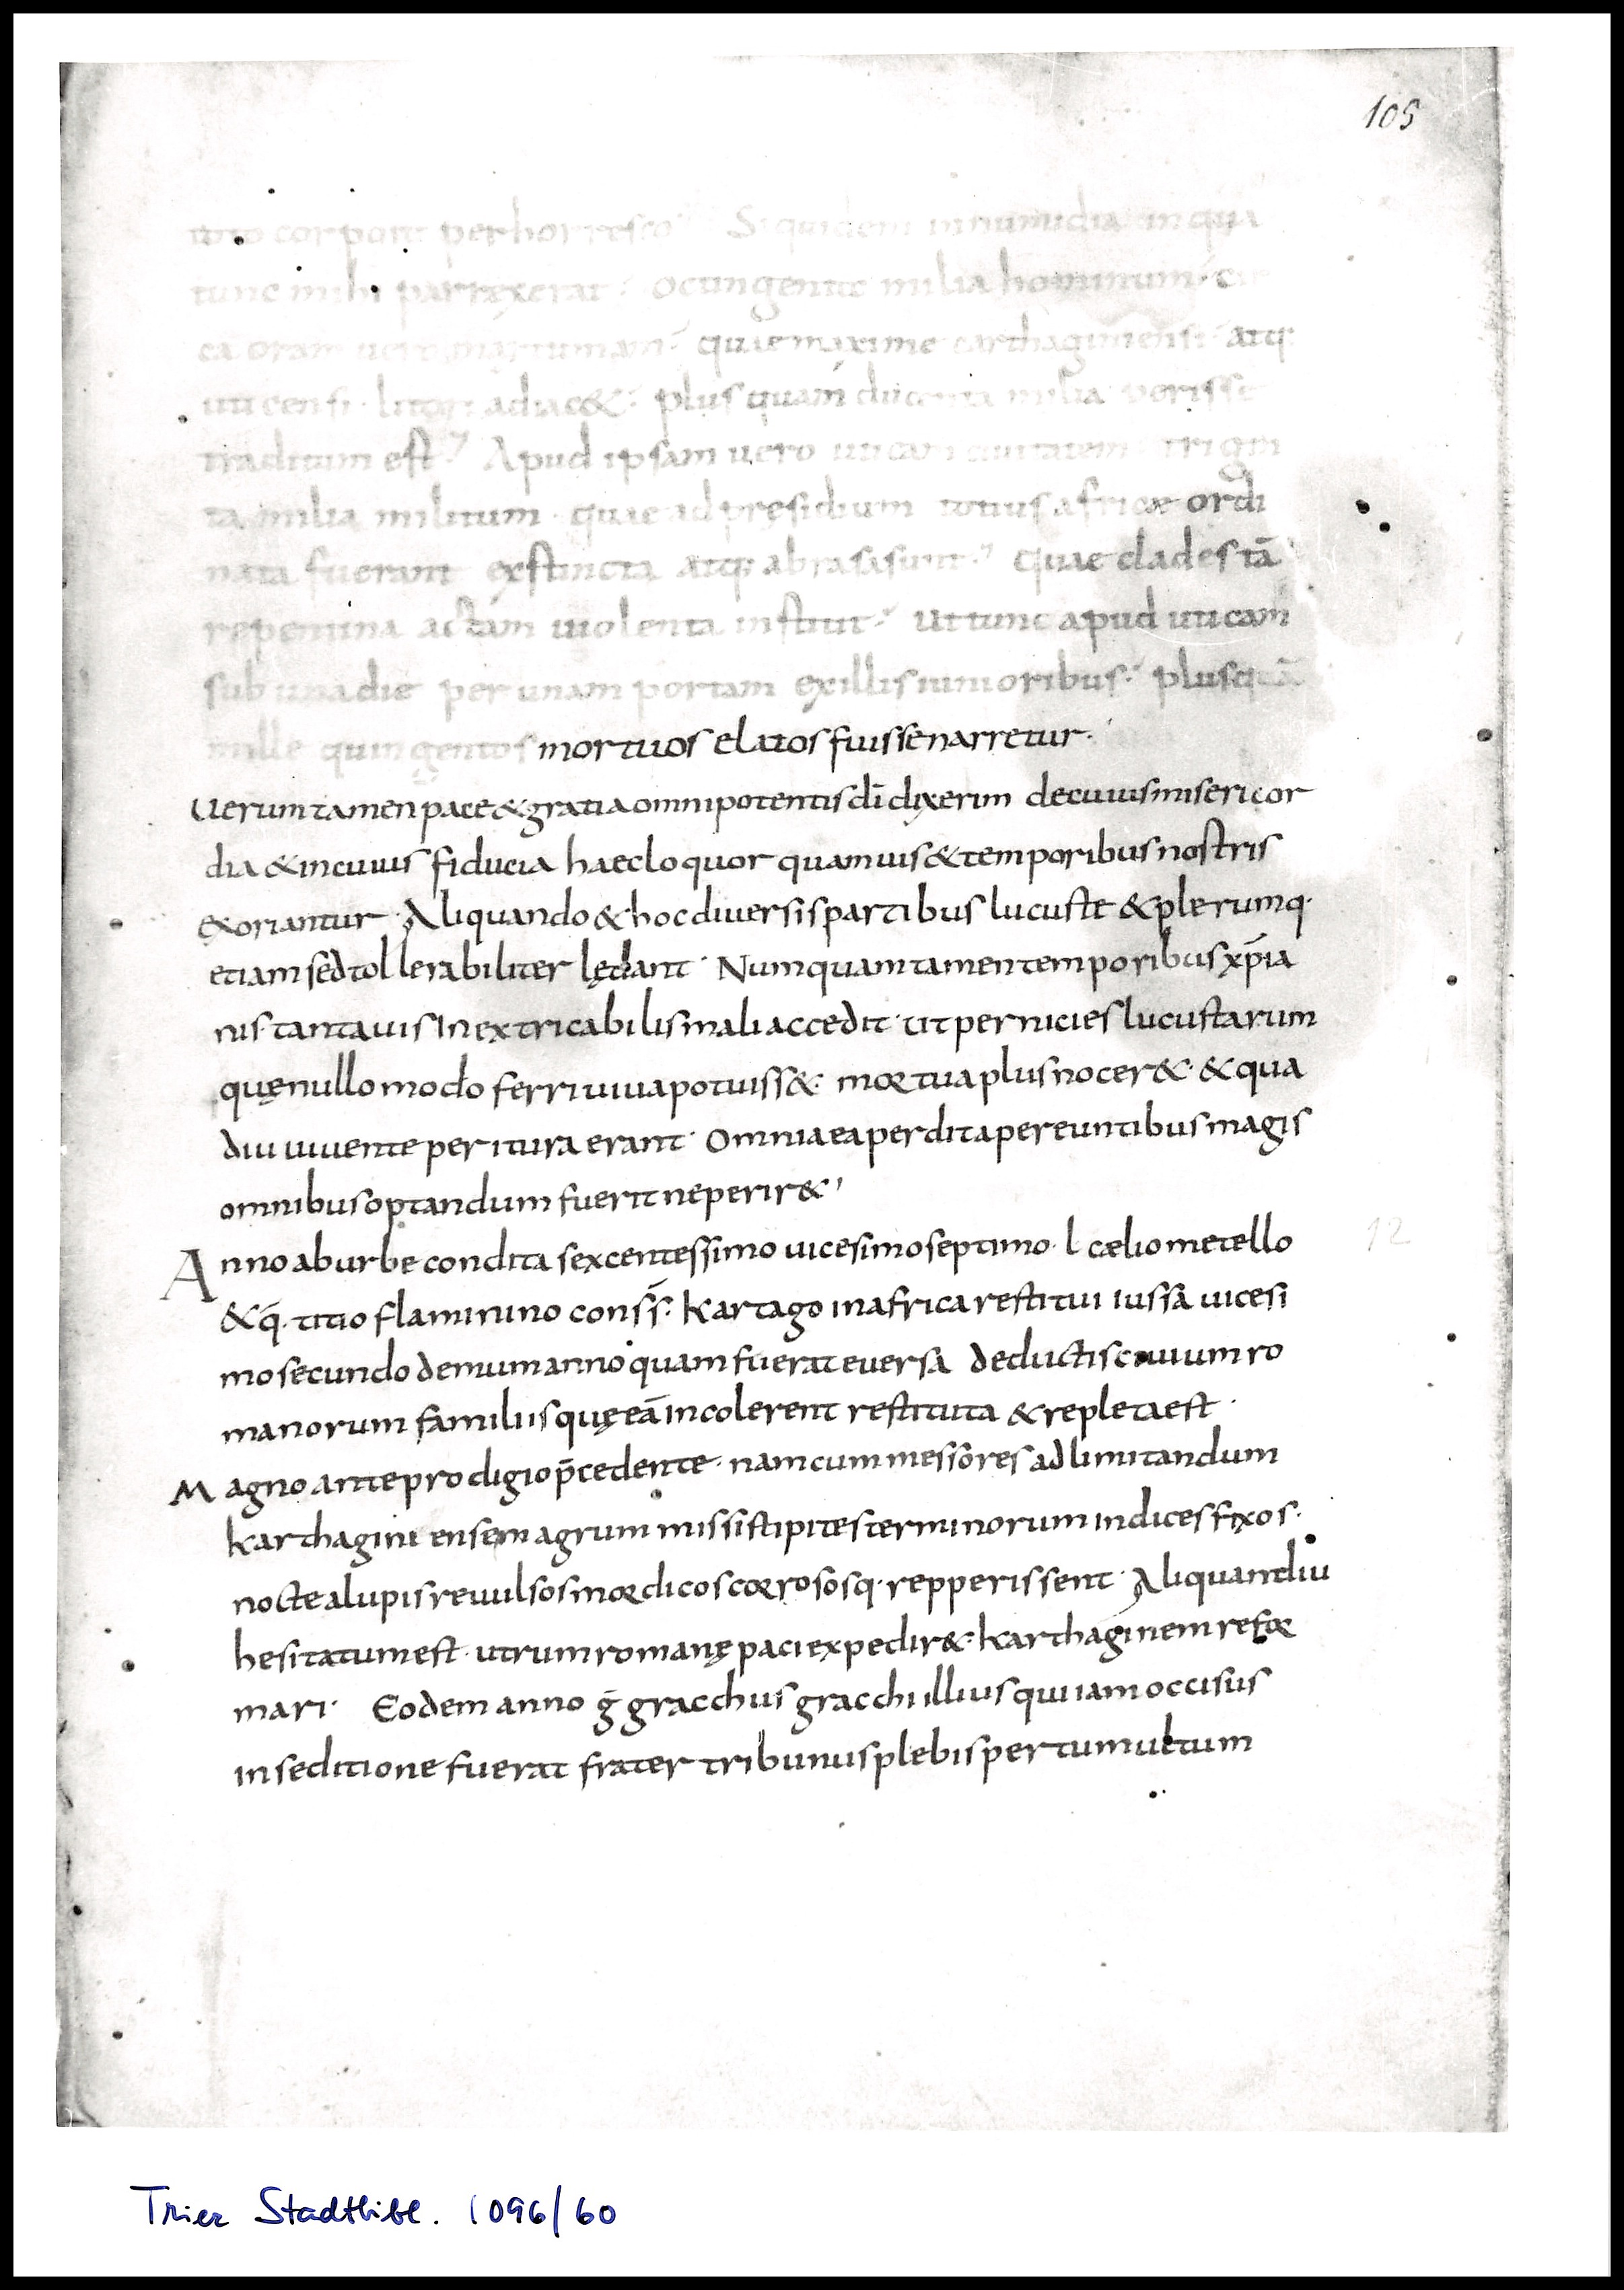 105
toto corpore perhorresco Siquidem in numidia in qua
tunc mihi parrexerat octingente milia hominum cir
ca oram uero maritumam quae maxime carthaginensi atq:
uticensi litori adiac&: plus quam ducenta milia perisse
traditum est Apud ipsam uero uticam ciuitatem trigin
ta milia militum quae ad presidium totius africae ordi
nata fuerant exstincta atq: abrasa sunt Quae clades tā
repentina ac tam uiolenta institit ut tunc apud uticam
sub una die per unam portam ex illis iunioribus plus quā
mille quingentos mortuos elatos fuisse narretur.
Uerumtamen pace & gratia omnipotentis dī dixerim de cuius misericor
dia & in cuius fiducia haec loquor quamuis & temporibus nostris
exoriantur Aliquando & hoc diuersis partibus lucuste & plerumq.
etiam sed tollerabiliter lędant Numquam tamen temporibus xp̄ia
nis tanta uis Inextricabilis mali accedit ut pernicies lucustarum
quę nullo modo ferri uiua potuiss&: mortua plus nocer& & qua
diu uiuente peritura erant Omnia ea perdita pereuntibus magis
omnibus optandum fuerit ne perir&
Anno ab urbe condita sexcentessimo uicesimo septimo l cælio metello
& q̄. titio flaminino conss̄: Kartago in africa restitui iussa uicesi
mo secundo demum anno quam fuerat euersa deductis ciuium ro
manorum familiis quę eā incolerent restituta & repleta est
Magno ante prodigio p̄cedente. nam cum messores ad limitandum
karthagini ensem agrum missi stipites terminorum indices fixos.
nocte a lupis reuulsos mordicos corrososq. repperissent Aliquandiu
hesitatum est utrum romanę paci expedir&: karthaginem refor
mari Eodem anno ḡ gracchus gracchi illius qui iam occisus
in seditione fuerat frater tribunus plebis per tumultum
12
Trier Stadtbibl. 1096/60